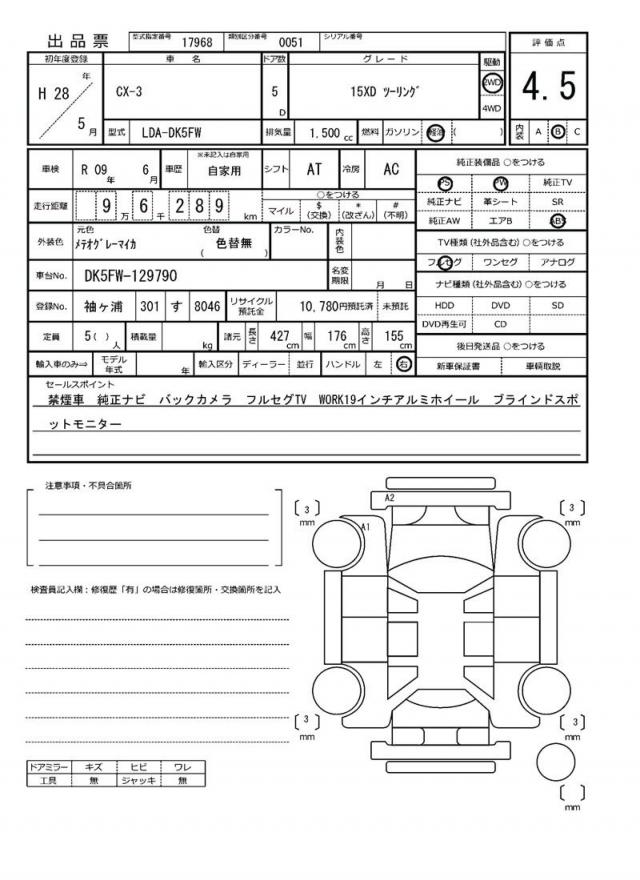 出品票 型式指定番号 17968 類別区分番号 0051 シリアル番号
初年度登録 車名 ドア数 グレード 駆動 評価点
H 28 年 5 月 CX-3 5 D 15XD ツーリング 2WD 4WD 4.5
型式 LDA-DK5FW 排気量 1.500 cc 燃料 ガソリン 軽油 ( ) 内装 A B C
車検 R 09 年 6 月 車歴 ※未記入は自家用 自家用 シフト AT 冷房 AC
純正装備品 ○をつける
PS PW 純正TV
走行距離 9 万 6 千 2 8 9 km ○をつける マイル $ (交換) * (改ざん) # (不明)
純正ナビ 革シート SR
純正AW エアB ABS
外装色 元色 メテオグレーマイカ 色替 ( 色替無 ) カラーNo. 内装色
TV種類(社外品含む) ○をつける
フルセグ ワンセグ アナログ
車台No. DK5FW-129790 名変期限 月 日
ナビ種類(社外品含む) ○をつける
登録No. 袖ヶ浦 301 す 8046 リサイクル預託金 10,780円預託済 未預託
HDD DVD SD
DVD再生可 CD
定員 5( ) 人 積載量 kg 諸元 長さ 427 cm 幅 176 cm 高さ 155 cm
後日発送品 ○をつける
輸入車のみ⇒ モデル年式 年 輸入区分 ディーラー 並行 ハンドル 左 右
新車保証書 車輌取説
セールスポイント
禁煙車 純正ナビ バックカメラ フルセグTV WORK19インチアルミホイール ブラインドスポ
ットモニター
注意事項・不具合箇所
A2
( 3 ) mm
( 3 ) mm
A1
検査員記入欄:修復歴「有」の場合は修復箇所・交換箇所を記入
( 3 ) mm
( 3 ) mm
ドアミラー キズ ヒビ ワレ
工具 無 ジャッキ 無
( ) mm